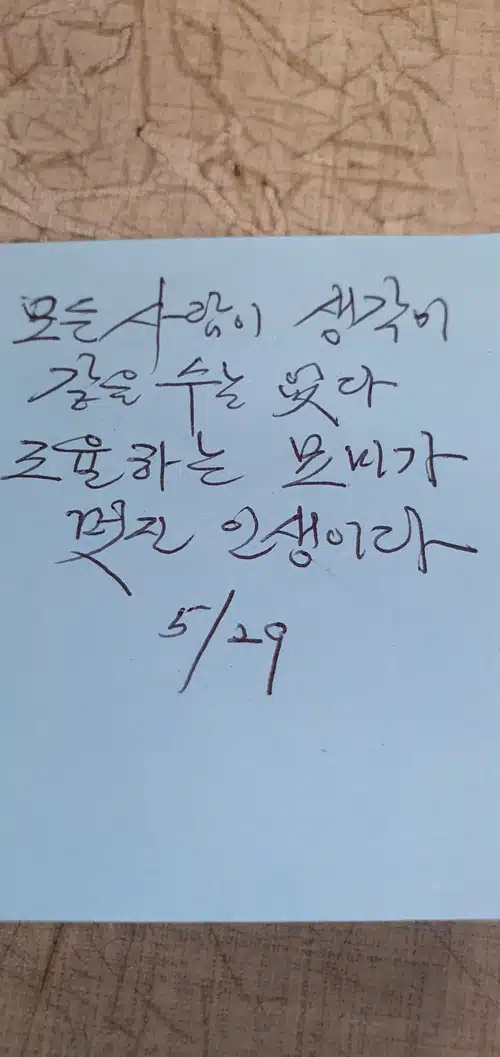 모든 사람이 생각이
같을 수는 없다
조율하는 묘미가
멋진 인생이다
5/29